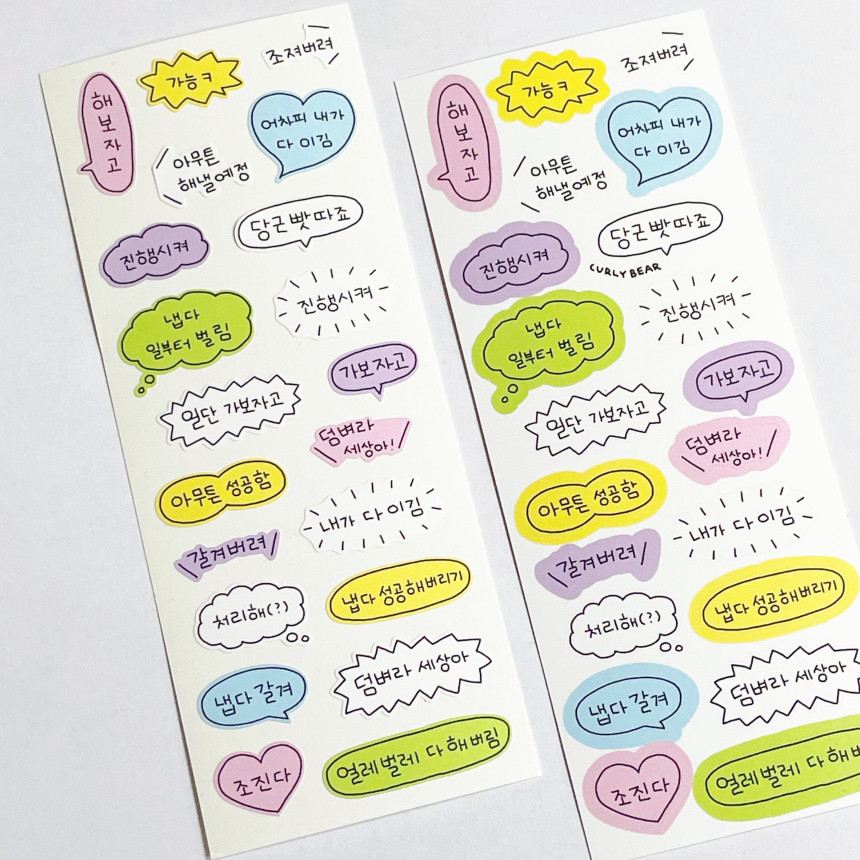 해
보
자
고
가능ㅋ
조져버려
어차피 내가
다 이김
아무튼
해낼예정
진행시켜
당근 빳따죠
냅다
일부터 벌림
진행시켜
가보자고
일단 가보자고
덤벼라
세상아!
아무튼 성공함
내가 다 이김
갈겨버려
처리해(?)
냅다 성공해버리기
냅다 갈겨
덤벼라 세상아
조진다
열레벌레 다 해버림
해
보
자
고
가능ㅋ
조져버려
어차피 내가
다 이김
아무튼
해낼예정
진행시켜
당근 빳따죠
CURLY BEAR
냅다
일부터 벌림
진행시켜
가보자고
일단 가보자고
덤벼라
세상아!
아무튼 성공함
내가 다 이김
갈겨버려
처리해(?)
냅다 성공해버리기
냅다 갈겨
덤벼라 세상아
조진다
열레벌레 다 해버